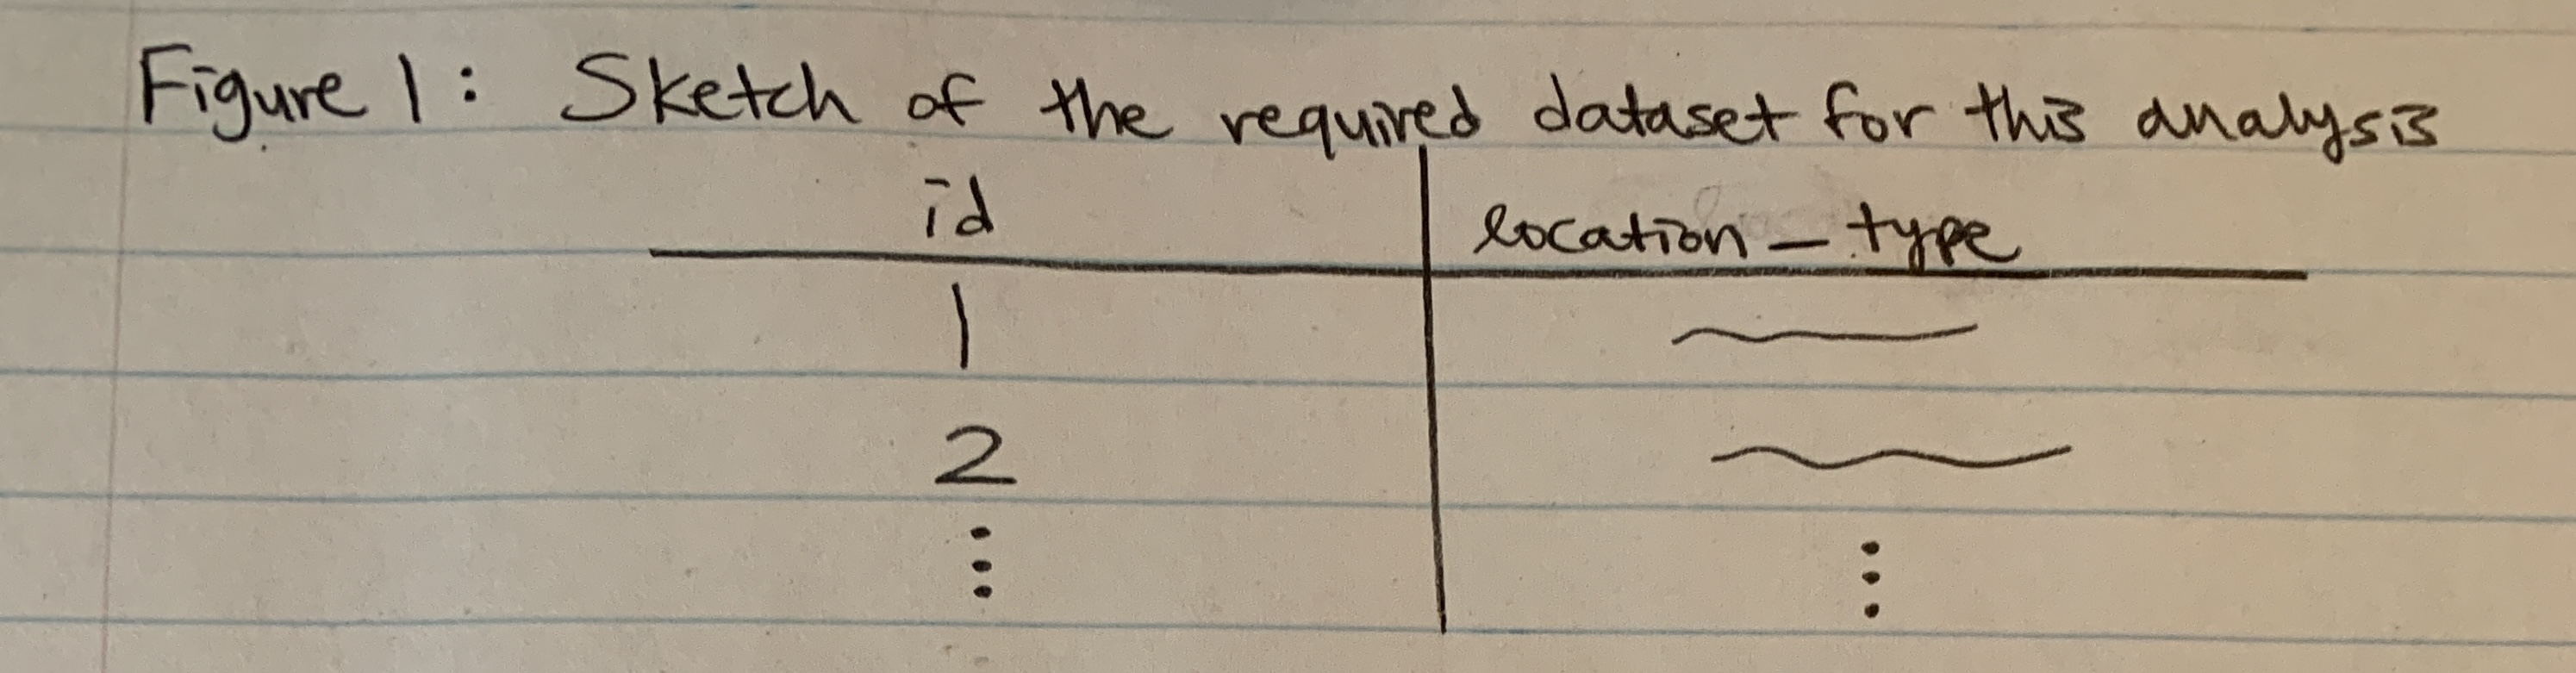 Figure 1: Sketch of the required dataset for this analysis
id location_type
1
2